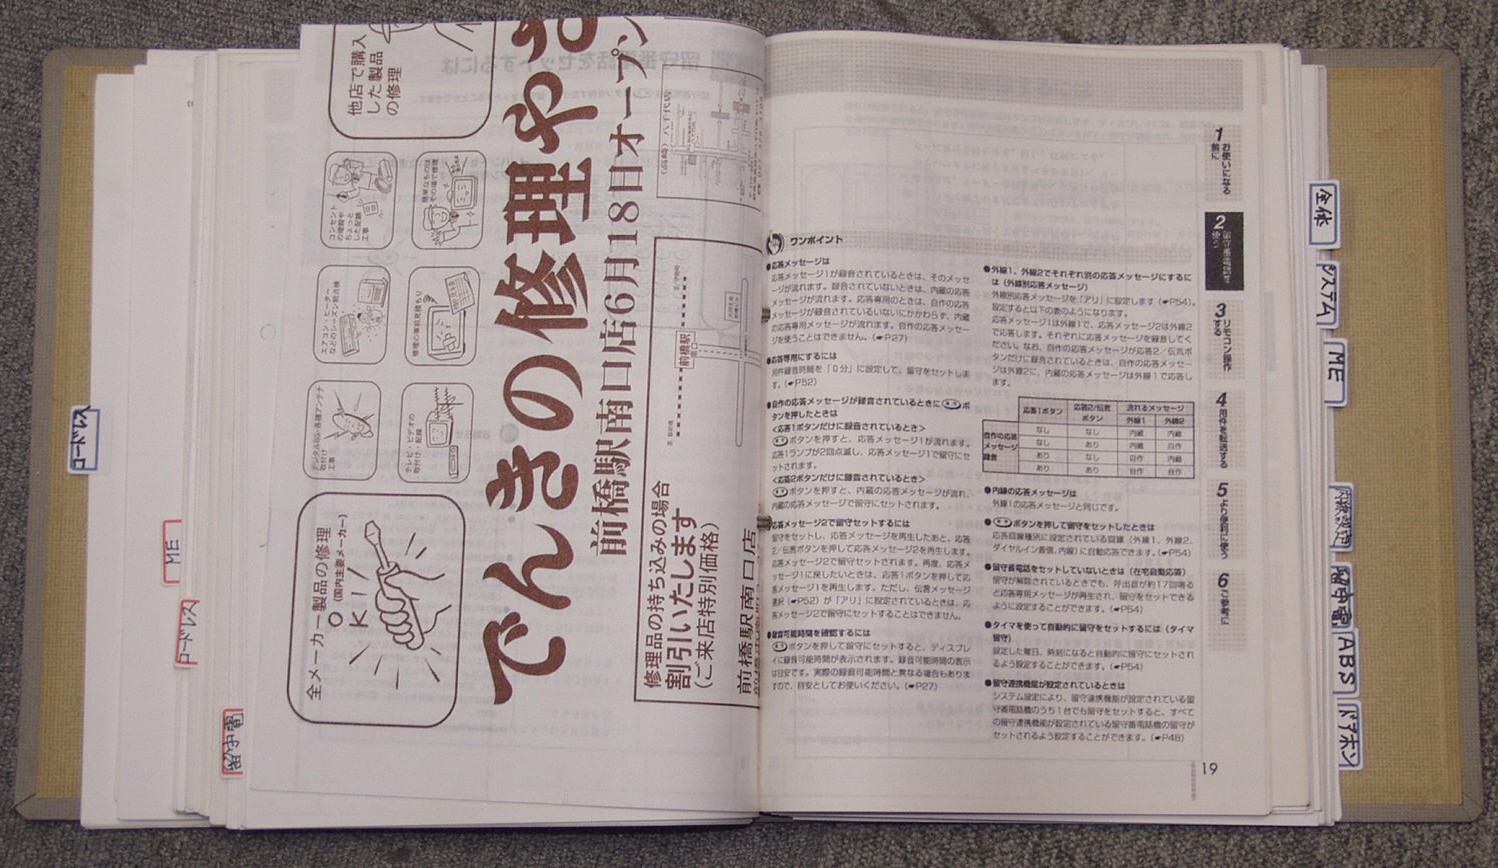 コードレス
ME
コードレス
留守電
他店で購入
した製品
の修理
コンセント
の増設や
ちょっと
した配線
工事
簡単なものは
その場で修理
エアコン・ヒーター
などのシーズン前点検
修理の事前見積もり
デジタルBS・各種アンテナ
取付け
工事
テレビ・ビデオの
取付け・配線
全メーカー製品の修理
(国内主要メーカー)
OK!
でんきの修理やさ
前橋駅南口店6月18日オープン
(高崎)八千代店
前橋駅
南口
修理品の持ち込みの場合
割引いたします
(ご来店特別価格)
前橋駅南口店
ワンポイント
●応答メッセージは
応答メッセージ1が録音されているときは、そのメッセ
ージが流れます。録音されていないときは、内蔵の応答
メッセージが流れます。応答専用のときは、自作の応答
メッセージが録音されているいないにかかわらず、内蔵
の応答専用メッセージが流れます。自作の応答メッセー
ジを使うことはできません。(☛P27)
●応答専用にするには
用件録音時間を「0分」に設定して、留守をセットしま
す。(☛P52)
●自作の応答メッセージが録音されているときに ボ
タンを押したときは
<応答1ボタンだけに録音されているとき>
ボタンを押すと、応答メッセージ1が流れます。
応答1ランプが2回点滅し、応答メッセージ1で留守にセ
ットされます。
<応答2ボタンだけに録音されているとき>
ボタンを押すと、内蔵の応答メッセージが流れ、
内蔵の応答メッセージで留守にセットされます。
応答メッセージ2で留守セットするには
留守をセットし、応答メッセージを再生したあと、応答
2/伝言ボタンを押して応答メッセージ2を再生します。
応答メッセージ2で留守セットされます。再度、応答メ
ッセージ1に戻したいときは、応答1ボタンを押して応
答メッセージ1を再生します。ただし、伝言メッセージ
選択(☛P52)が「アリ」に設定されているときは、応
答メッセージ2で留守セットすることはできません。
録音可能時間を確認するには
ボタンを押して留守にセットすると、ディスプレ
イに録音可能時間が表示されます。録音可能時間の表示
は目安です。実際の録音可能時間と異なる場合もありま
すので、目安としてお使いください。(☛P27)
●外線1、外線2でそれぞれ別の応答メッセージにするに
は(外線別応答メッセージ)
外線別応答メッセージを「アリ」に設定します(☛P54)。
設定すると以下の表のようになります。
応答メッセージ1は外線1で、応答メッセージ2は外線2
で応答します。それぞれに応答メッセージを録音してく
ださい。なお、自作の応答メッセージが応答2/伝言ボ
タンだけに録音されているときは、自作の応答メッセー
ジは外線2に、内蔵の応答メッセージは外線1で応答し
ます。
応答1ボタン 応答2/伝言ボタン 流れるメッセージ
外線1 外線2
自作の応答メッセージ録音
なし なし 内蔵 内蔵
なし あり 内蔵 自作
あり なし 自作 内蔵
あり あり 自作 自作
●内線の応答メッセージは
外線1の応答メッセージと同じです。
● ボタンを押して留守をセットしたときは
応答回線種別に設定されている回線(外線1、外線2、
ダイヤルイン着信、内線)に自動応答できます。(☛P54)
●留守番電話をセットしていないときは(在宅自動応答)
留守が解除されているときでも、呼出音が約17回鳴る
と応答専用メッセージが再生され、留守をセットできる
ように設定することができます。(☛P54)
●タイマを使って自動的に留守をセットするには(タイマ
留守)
設定した曜日、時刻になると自動的に留守にセットされ
るよう設定することができます。(☛P54)
●留守連携機能が設定されているときは
システム設定により、留守連携機能が設定されている留
守番電話機のうち1台でも留守をセットすると、すべて
の留守連携機能が設定されている留守番電話機の留守が
セットされるよう設定することができます。(☛P48)
19
1 お使いになる前に
2
3 リモコン操作する
4 用件を転送する
5 より便利に使う
6 ご参考に
全体
システム
ME
留守電
ABS
ドアホン